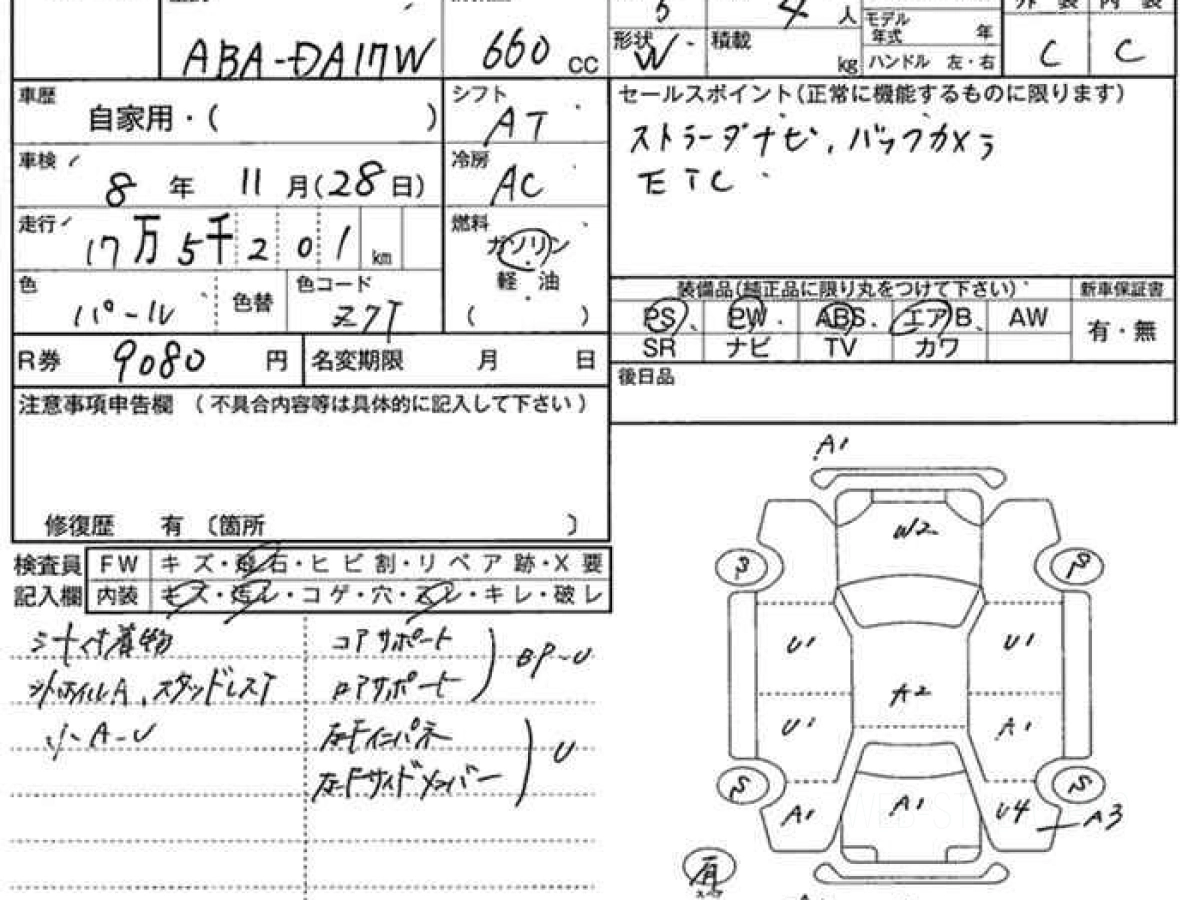 5 4 人 モデル年式 年
ABA-DA17W 660 cc 形状 W 積載 kg ハンドル 左・右 C C
車歴 自家用・( ) シフト AT
セールスポイント(正常に機能するものに限ります)
ストラーダナビ, バックカメラ
ETC
車検 8 年 11 月(28日) 冷房 AC
走行 17万5千201 km 燃料 ガソリン
軽・油
( )
色 パール 色替 色コード Z7T
装備品(純正品に限り丸をつけて下さい) 新車保証書
PS PW ABS エアB AW 有・無
SR ナビ TV カワ
R券 9080 円 名変期限 月 日
後日品
注意事項申告欄 (不具合内容等は具体的に記入して下さい)
修復歴 有 〔箇所 〕
検査員 FW キズ・飛石・ヒビ割・リペア跡・X要
記入欄 内装 キズ・汚レ・コゲ・穴・スレ・キレ・破レ
シート付着物
ホイルA、スタッドレスT
小A-U
コアサポート
ロアサポート
BP-U
左Fインパネ
左Fサイドメンバー
U
A1
W2
U1 U1
A2
U1 A1
S S
A1 A1 U4 A3
有
スペア